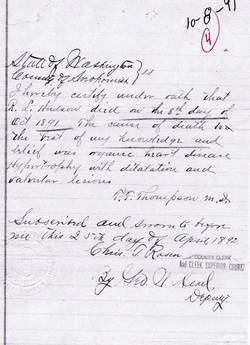 10-8-91
4
State of Washington } ss
County of Snohomish }
I hereby certify under oath that
R. L. Hudson died on the 8th day of
Oct 1891 The cause of death to
the best of my knowledge and
belief was organic heart disease
Hypertrophy with dilatation and
valvular lesions
T. Thompson M.D.
Subscribed and sworn to before
me this 25th day of April 1892
COUNTY CLERK
AND CLERK SUPERIOR COURT
By Geo W Head
Deputy